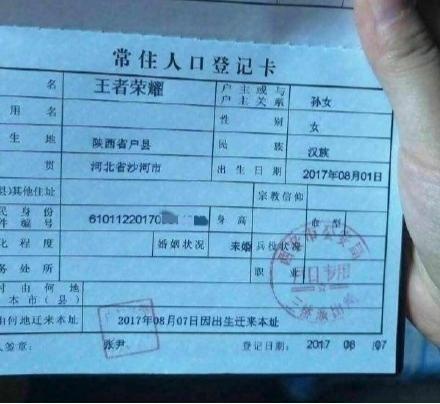 常住人口登记卡
名 王者荣耀 户主或与户主关系 孙女
用名 性别 女
生地 陕西省户县 民族 汉族
贯 河北省沙河市 出生日期 2017年08月01日
县)其他住址 宗教信仰
民身份件编号 61011220170 身高 血型
化程度 婚姻状况 未婚 兵役状况
务处所 职业
时由何地
本市(县)
由何地迁来本址 2017年08月07日因出生迁来本址
人签章: 张尹 登记日期: 2017 08 07